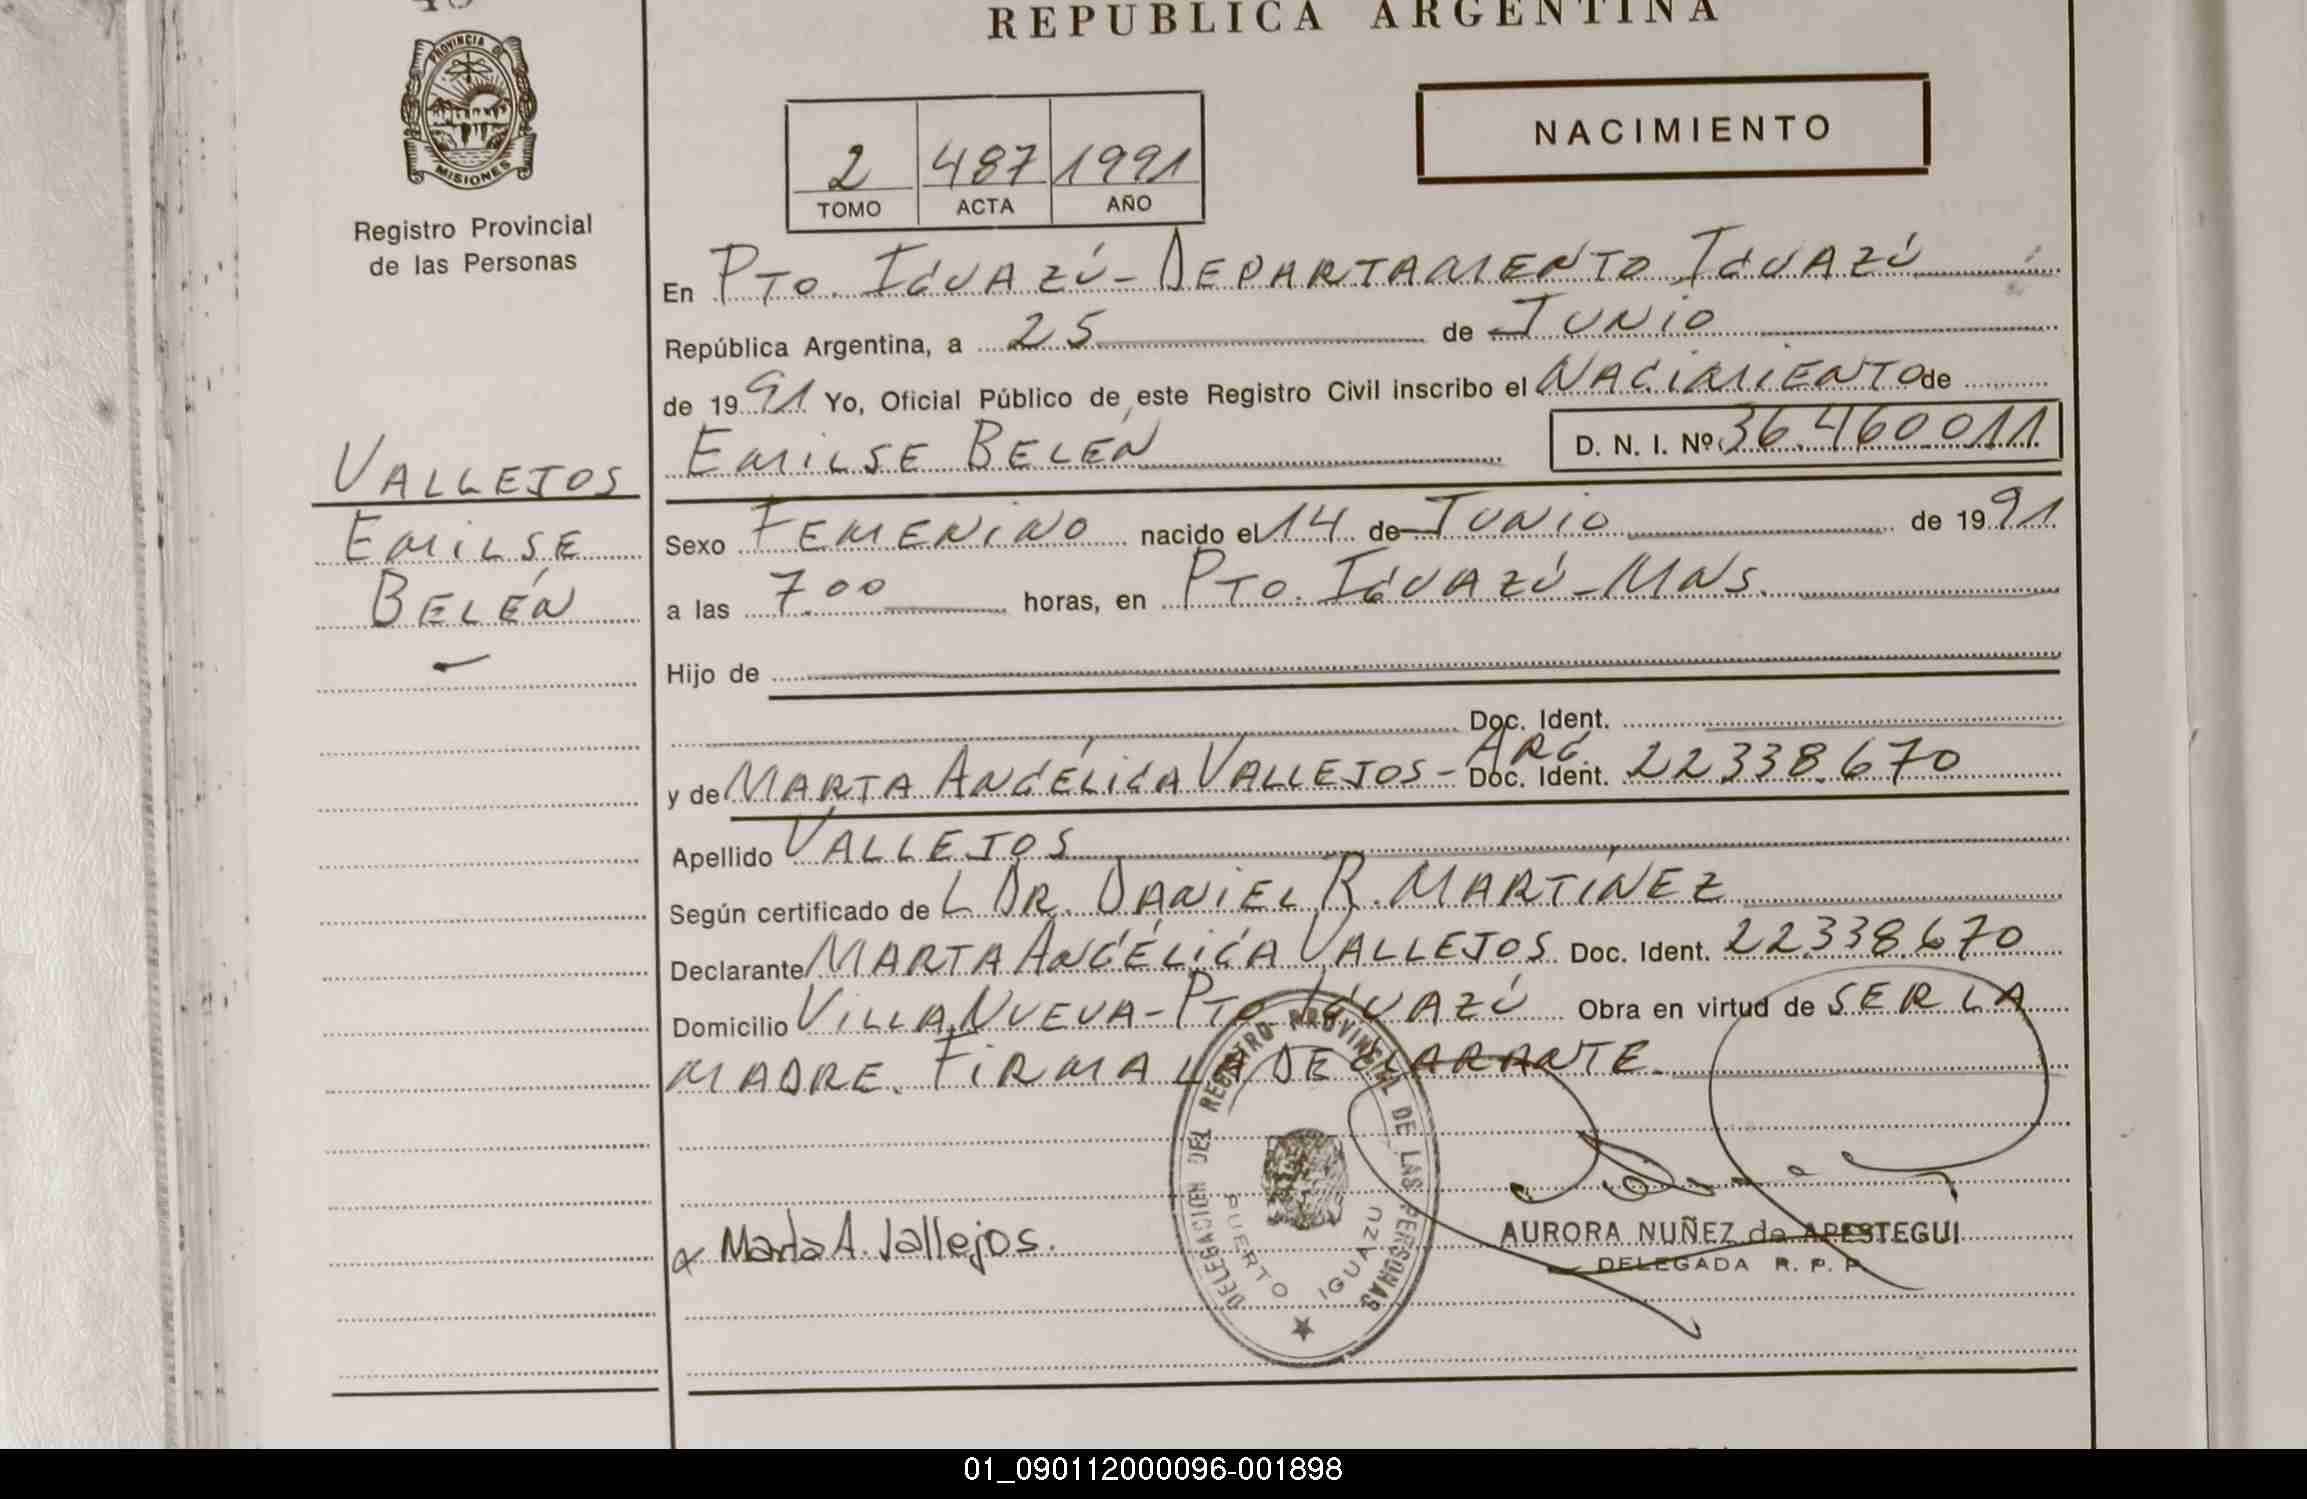 REPUBLICA ARGENTINA
PROVINCIA DE
MISIONES
Registro Provincial
de las Personas
NACIMIENTO
2 487 1991
TOMO ACTA AÑO
En PTO. IGUAZÚ - DEPARTAMENTO IGUAZÚ
República Argentina, a 25 de JUNIO
de 1991 Yo, Oficial Público de este Registro Civil inscribo el NACIMIENTO de
EMILSE BELÉN D. N. I. Nº 36.460.011
VALLEJOS
EMILSE
BELÉN
Sexo FEMENINO nacido el 14 de JUNIO de 1991
a las 7.00 horas, en PTO. IGUAZÚ - MNS.
Hijo de
Doc. Ident.
ARG.
y de MARTA ANGÉLICA VALLEJOS - Doc. Ident. 22.338.670
Apellido VALLEJOS
Según certificado de L DR. DANIEL R. MARTÍNEZ
Declarante MARTA ANGÉLICA VALLEJOS Doc. Ident. 22.338.670
Domicilio VILLA NUEVA - PTO. IGUAZÚ Obra en virtud de SER LA
MADRE. FIRMA LA DECLARANTE.
DELEGACION DEL REGISTRO PROVINCIAL DE LAS PERSONAS
PUERTO IGUAZU
Marta A. Vallejos.
AURORA NUÑEZ de APESTEGUI
DELEGADA R. P. P.
01_090112000096-001898